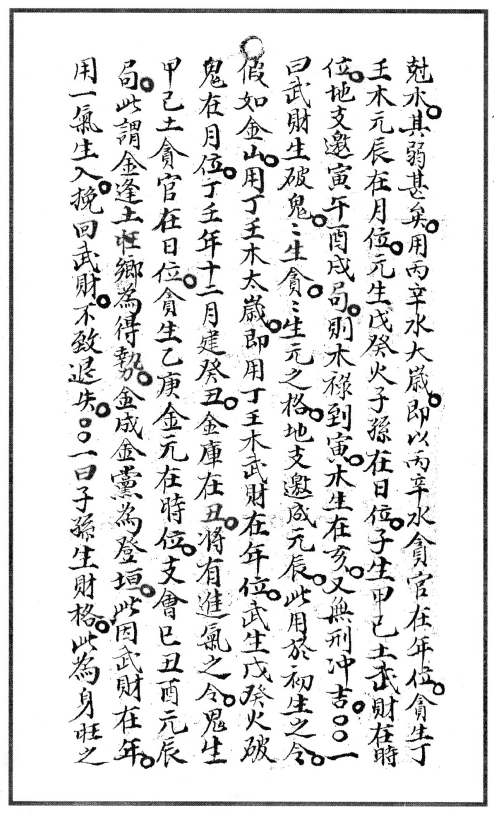 尅水其弱甚矣。用丙辛水大歲。即以丙辛水貪官在年位。貪生丁
壬木元辰在月位。元生戊癸火子孫在日位。子生甲己土武財在時
位。地支邀寅午酉戌局。則木祿到寅。木生在亥。又無刑冲吉。。一
曰武財生破鬼。〻生貪。〻生元之格。地支邀成元辰。此用於初生之令。
假如金山。用丁壬木太歲。即用丁壬木武財在年位。武生戊癸火破
鬼在月位。丁壬年十二月建癸丑。金庫在丑。將有進氣之令。鬼生
甲己土貪官在日位。貪生乙庚金元在時位。支會巳丑酉元辰
局。此謂金逢土旺鄉為得勢。金成金黨為登垣。此因武財在年。
用一氣生入。挽回武財。不致退失。。一曰子孫生財格。此為身旺之